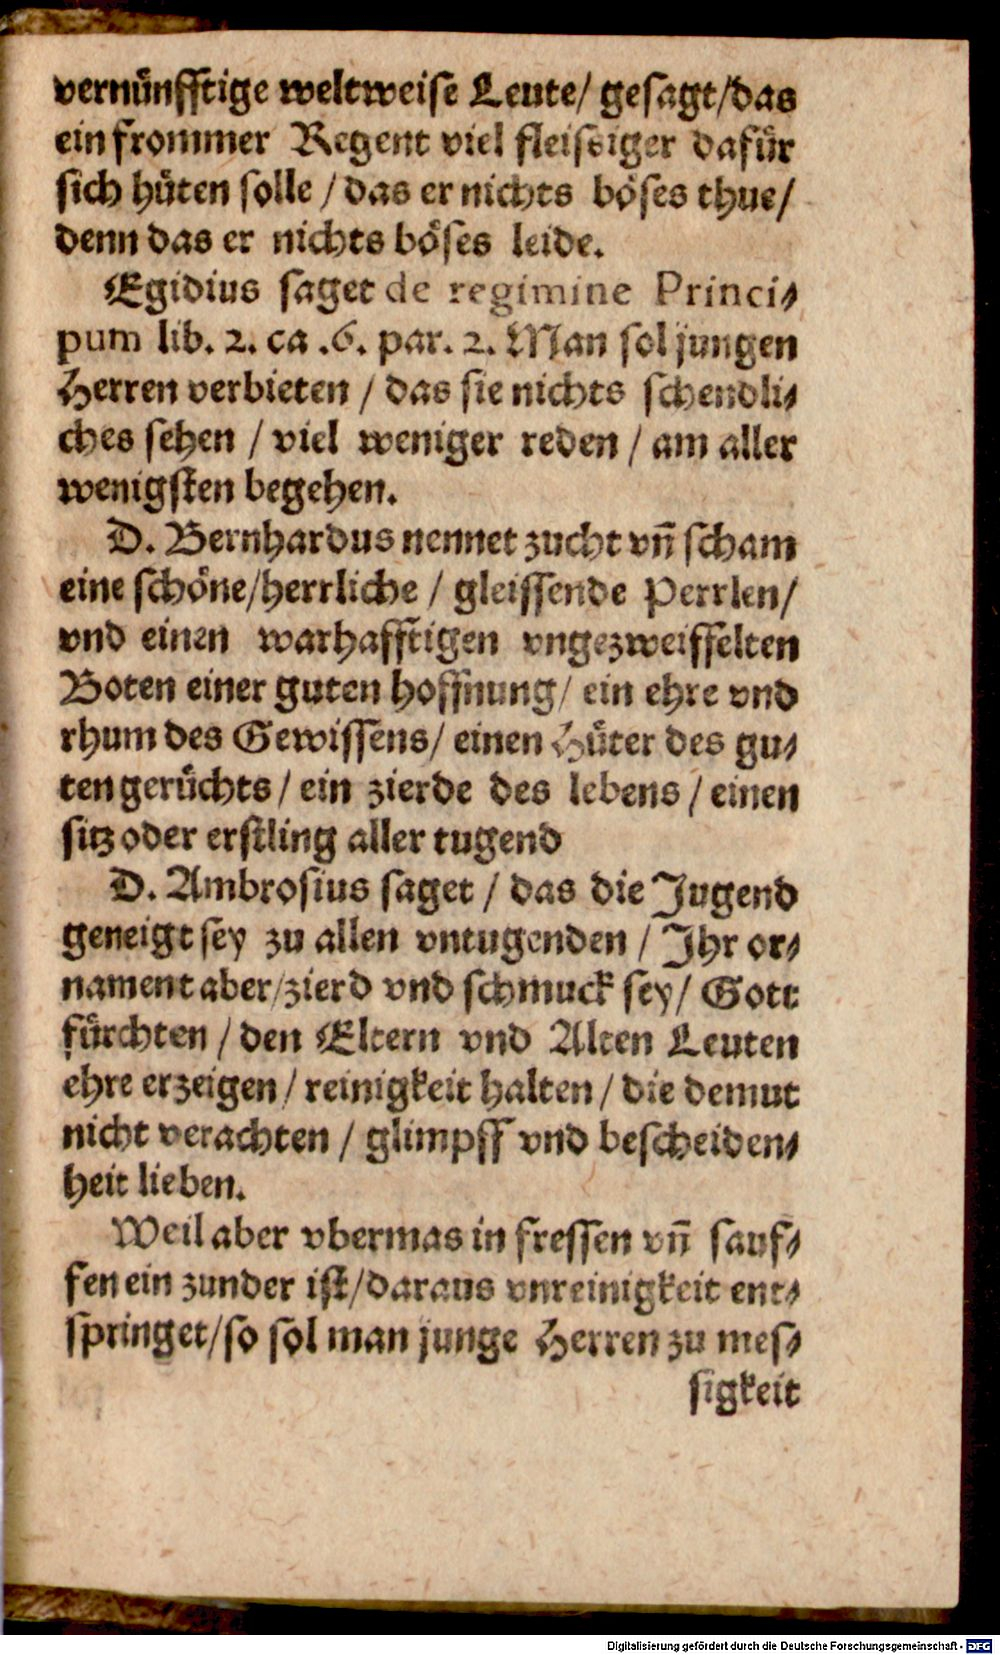 vernünfftige weltweise Leute/ gesagt/das
ein frommer Regent viel fleissiger dafür
sich hüten solle / das er nichts böses thue/
denn das er nichts böses leide.
Egidius saget de regimine Princi-
pum lib. 2. ca .6. par. 2. Man sol jungen
Herren verbieten / das sie nichts schendli-
ches sehen / viel weniger reden / am aller
wenigsten begehen.
D. Bernhardus nennet zucht vn̄ scham
eine schöne/herrliche / gleissende Perrlen/
vnd einen warhafftigen vngezweiffelten
Boten einer guten hoffnung/ ein ehre vnd
rhum des Gewissens/ einen Hüter des gu-
ten gerüchts/ ein zierde des lebens / einen
sitz oder erstling aller tugend
D. Ambrosius saget / das die Jugend
geneigt sey zu allen vntugenden / Ihr or-
nament aber/zierd vnd schmuck sey/ Gott
fürchten / den Eltern vnd Alten Leuten
ehre erzeigen/ reinigkeit halten/ die demut
nicht verachten / glimpff vnd bescheiden-
heit lieben.
Weil aber vbermas in fressen vn̄ sauf-
fen ein zunder ist/daraus vnreinigkeit ent-
springet/so sol man junge Herren zu mes-
sigkeit
Digitalisierung gefördert durch die Deutsche Forschungsgemeinschaft - DFG